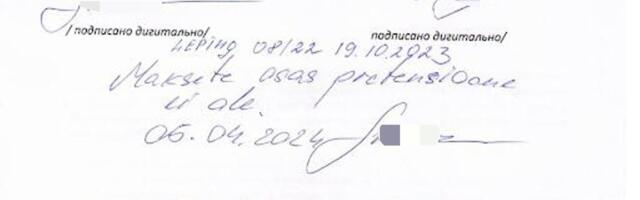 / подписано дигитально/ подписано дигитально/
LEPING 08/22 19.10.2023
Maksete osas pretensioone
ei ole.
05.04.2024